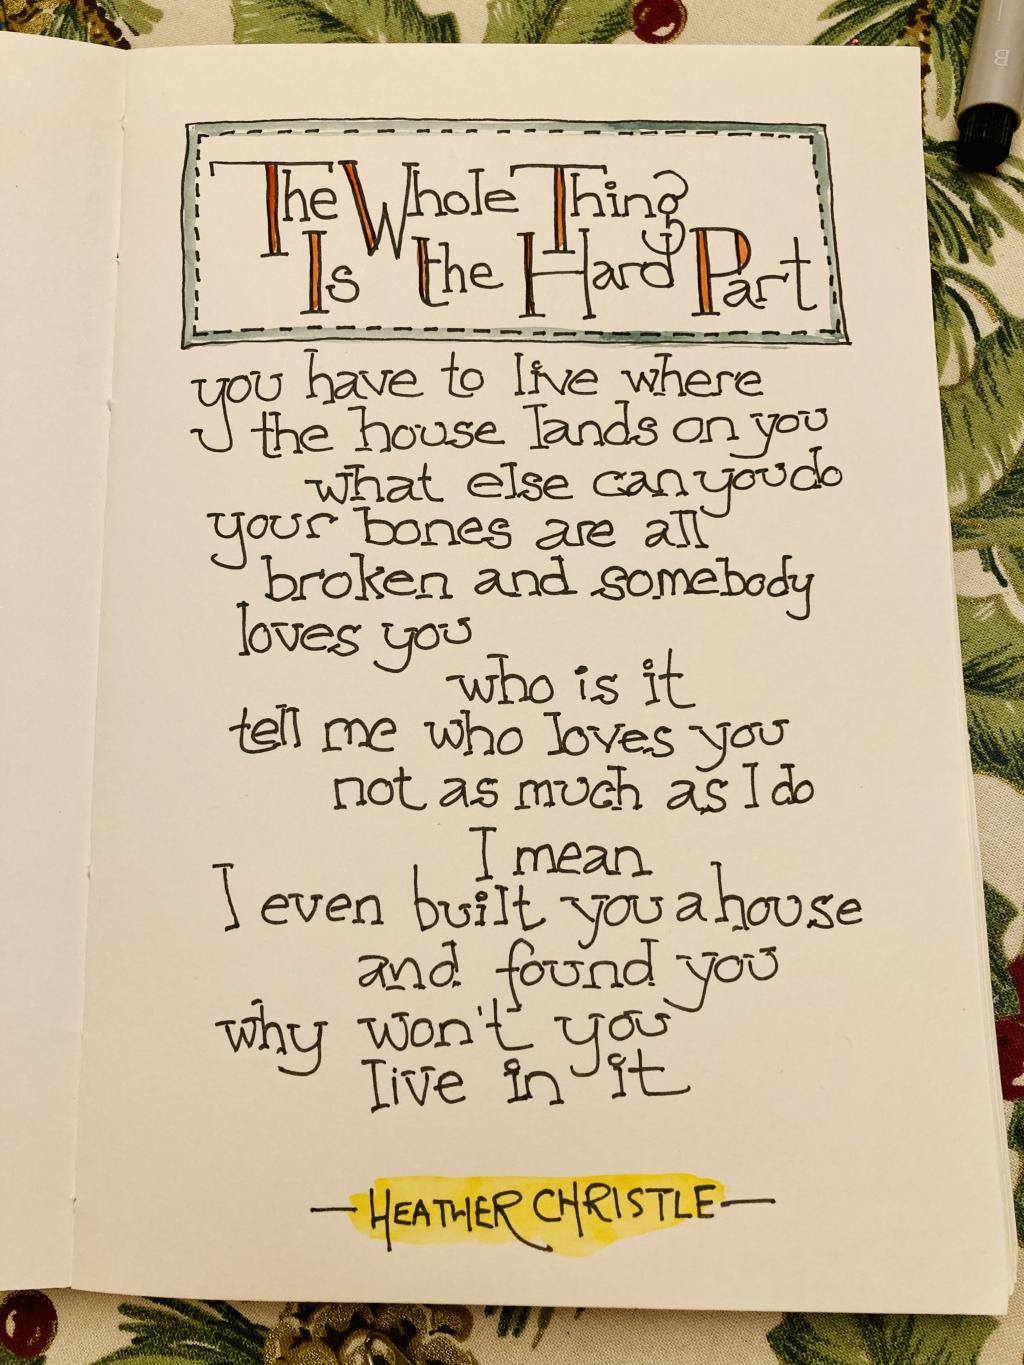 The Whole Thing
Is the Hard Part
you have to live where
the house lands on you
what else can you do
your bones are all
broken and somebody
loves you
who is it
tell me who loves you
not as much as I do
I mean
I even built you a house
and found you
why won't you
live in it
—HEATHER CHRISTLE—
B